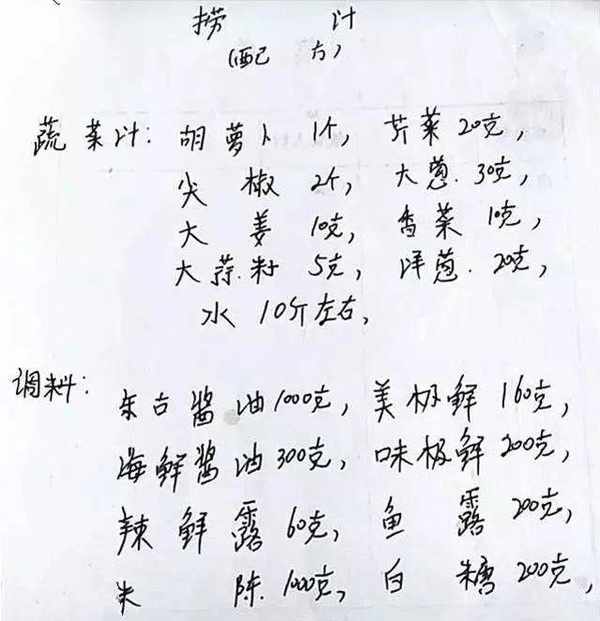 捞 汁
(配 方)
蔬菜汁: 胡萝卜 1个, 芹菜 20克,
尖椒 2个, 大葱. 30克,
大姜 10克, 香菜 10克,
大蒜.籽 5克, 洋葱. 20克,
水 10斤左右,
调料:
东古酱油 1000克, 美极鲜 160克,
海鲜酱油 300克, 味极鲜 200克,
辣鲜露 60克, 鱼露 200克,
陈. 1000克, 白糖 200克,